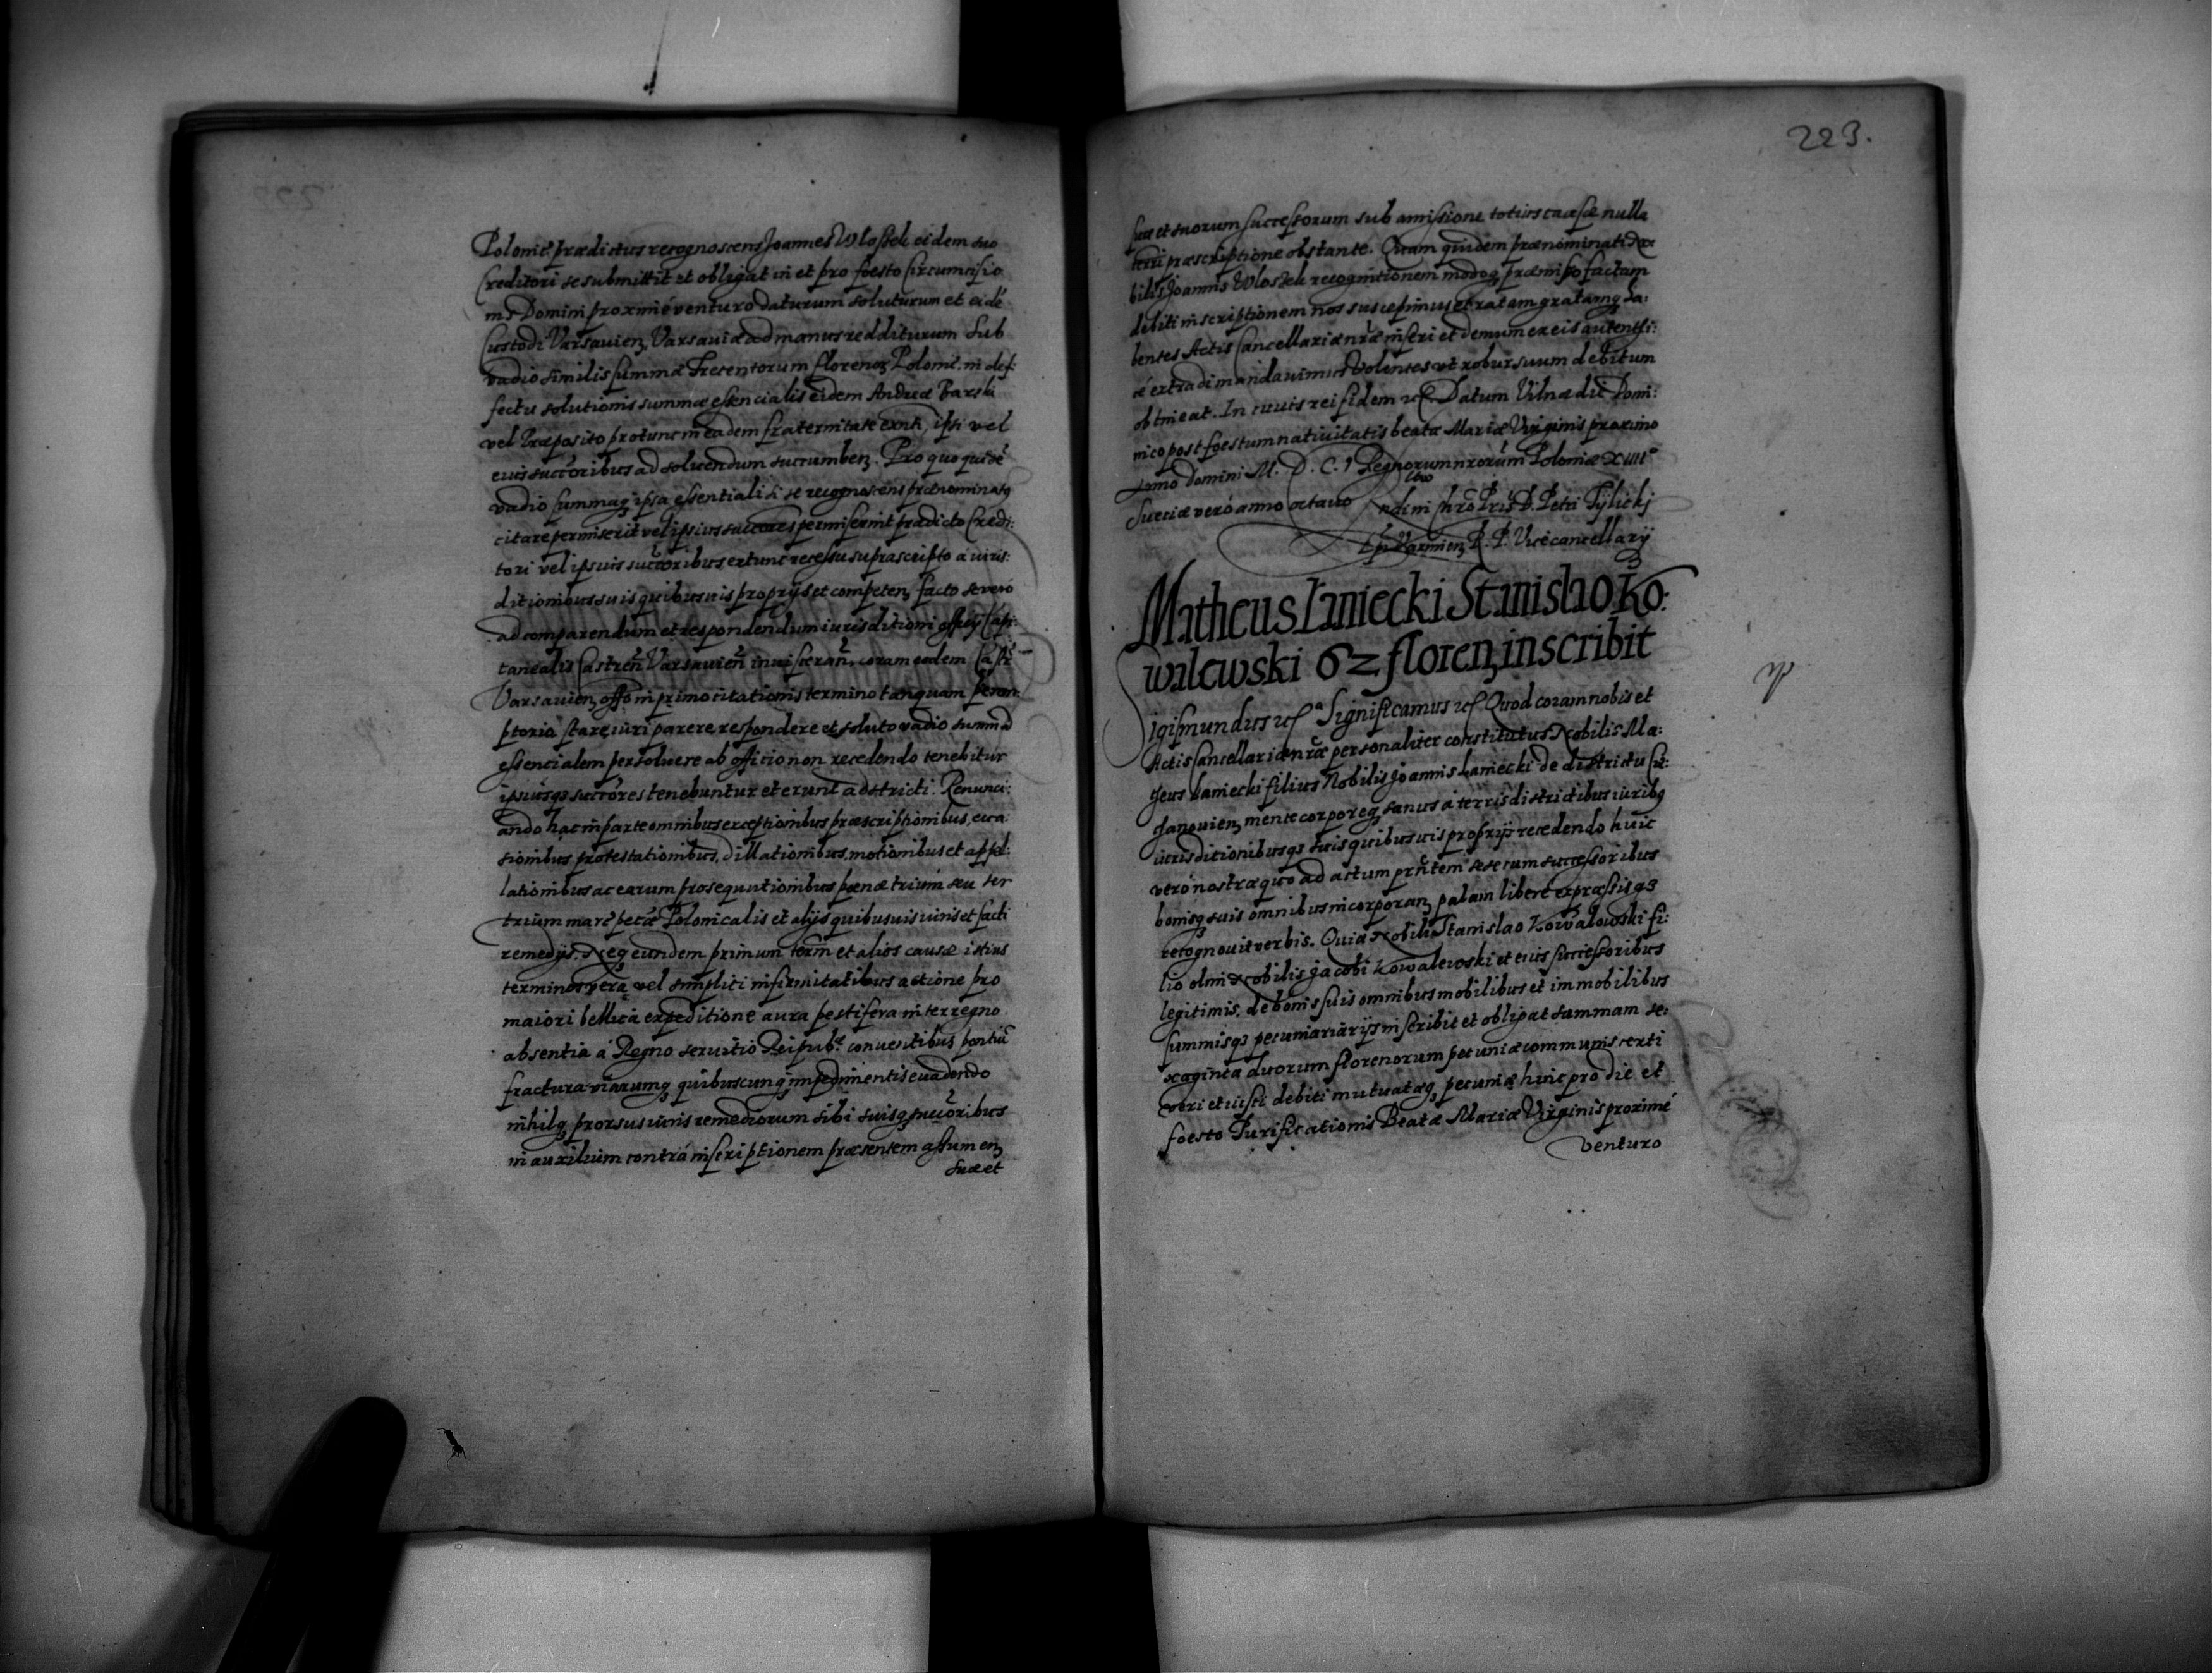 Polonic̃ prædictus recognoscens Joannes Wlostek eidem suo
Creditori se submittit et obligat in et pro foesto Circumcisio
nis Domini proximé venturo daturum soluturum et eidẽ
Custodi Varsauien̨ Varsauiæ ad manus redditurum sub
vadio similis summæ Trecentorum florenoꝝ Polonic̃. in def:
fectu solutionis summæ essencialis eidem Andreæ Barski
vel Præposito pro tunc in eadem fraternitate exnti, ipsi vel
eius succ̃oribus ad soluendum succumben̨. Pro quo quidẽ
vadio summaqȝ ipsa essentiali si se recognoscens prænominatꝯ
citare permiserit vel ipsius succores permiserint prædicto Credi:
tori vel ipsius succ̃oribus extunc recessu suprascripto á iuris:
ditionibus suis quibusuis proprijs et competen̨ facto se veró
ad comparendum et respondendum iurisditioni officij Capi:
tanealis Castren̄ Varsauien̄ inuisceran̄, coram eodem Castr̃
Varsauien̨ offo in primo citationis termino tanquam peram:
ptorio stare, iuri parere respondere et soluto vadio summã
essencialem persoluere ab officio non recedendo tenebitur
ipsiusqȝ succ̃ores tenebuntur et erunt adstricti. Renunci:
ando hac in parte omnibus exceptionibus præscriptionibus, eua:
sionibus protestationibus, dillationibus, motionibus et appel:
lationibus ac earum prosequutionibus pœnæ trium seu ter
trium marc̃ pecũæ Polonicalis et alijs quibusuis iuris et facti
remedijs. Neqȝ eundem primum term̃ et alios causæ istius
terminos vera vel simplici infirmitatibus actione pro
maiori bellica expeditione aura pestifera interregno
absentia á Regno seruitio Reipub: conuentibus pontiũ
fractura viarumqȝ quibuscunqȝ impedimentis euadendo
nihilqȝ prorsus iuris remediorum sibi suisqȝ succ̃oribus
in auxilium contrá inscriptionem præsentem assumen̨
suæ et
223.
suæ et suorum successorum sub amissione totius causæ nulla
terri præscriptione obstante. Quam quidem prænominati No:
bilis Joannis Wlostek recognitionem modoqȝ præmisso factam
debiti inscriptionem nos suscepimus et ratam gratamqȝ ha:
bentes Actis Cancellariæ nr̃æ inseri et demum ex eis autenthi:
cé extradi mandauimus Volentes vt robur suum debitum
obtineat. In cuius rei fidem etc. Datum Vilnæ die Domi:
nico post foestum natiuitatis beatæ Mariæ Virginis proximo
Anno Domini M. D. C. I Regnorum nrorũm Poloniæ XIIII°
Sueciæ veró anno octauo
ndi in Chr̃o Pris D. Petri Tÿlickj
Ep̃i Varmien̨ R. P. Vicecancellarÿ
Matheus Laniecki Stanislao Ko:
walewski 62 floren̨ inscribit
Sigismundus etc Significamus etc Quod coram nobis et
Actis Cancellariæ nr̃æ personaliter constitutus Nobilis Ma:
theus Laniecki filius Nobilis Joannis Laniecki de districtu Cie:
chanouien̨ mente corporeqȝ sanus á terris districtibus iuribꝯ
iurisditionibusqȝ suis quibusuis proprijs recedendo huic
veró nostræ quo ad actum prñtem sese cum successoribus
bonisqȝ suis omnibus incorporan̨ palam libere expressisqȝ
recognouit verbis. Quia Nobili Stanislao Kowalowski fi:
lio olim Nobilis Jacobi Kowalewski et eius successoribus
legitimis, de bonis suis omnibus mobilibus et immobilibus
summisqȝ pecuniariarijs inscribit et obligat summam se:
xaginta duorum florenorum pecuniæ communis certi
veri et iusti debiti mutuatæqȝ pecuniæ hinc pro die et
foesto Purificationis Beatæ Mariæ Virginis proximé
venturo